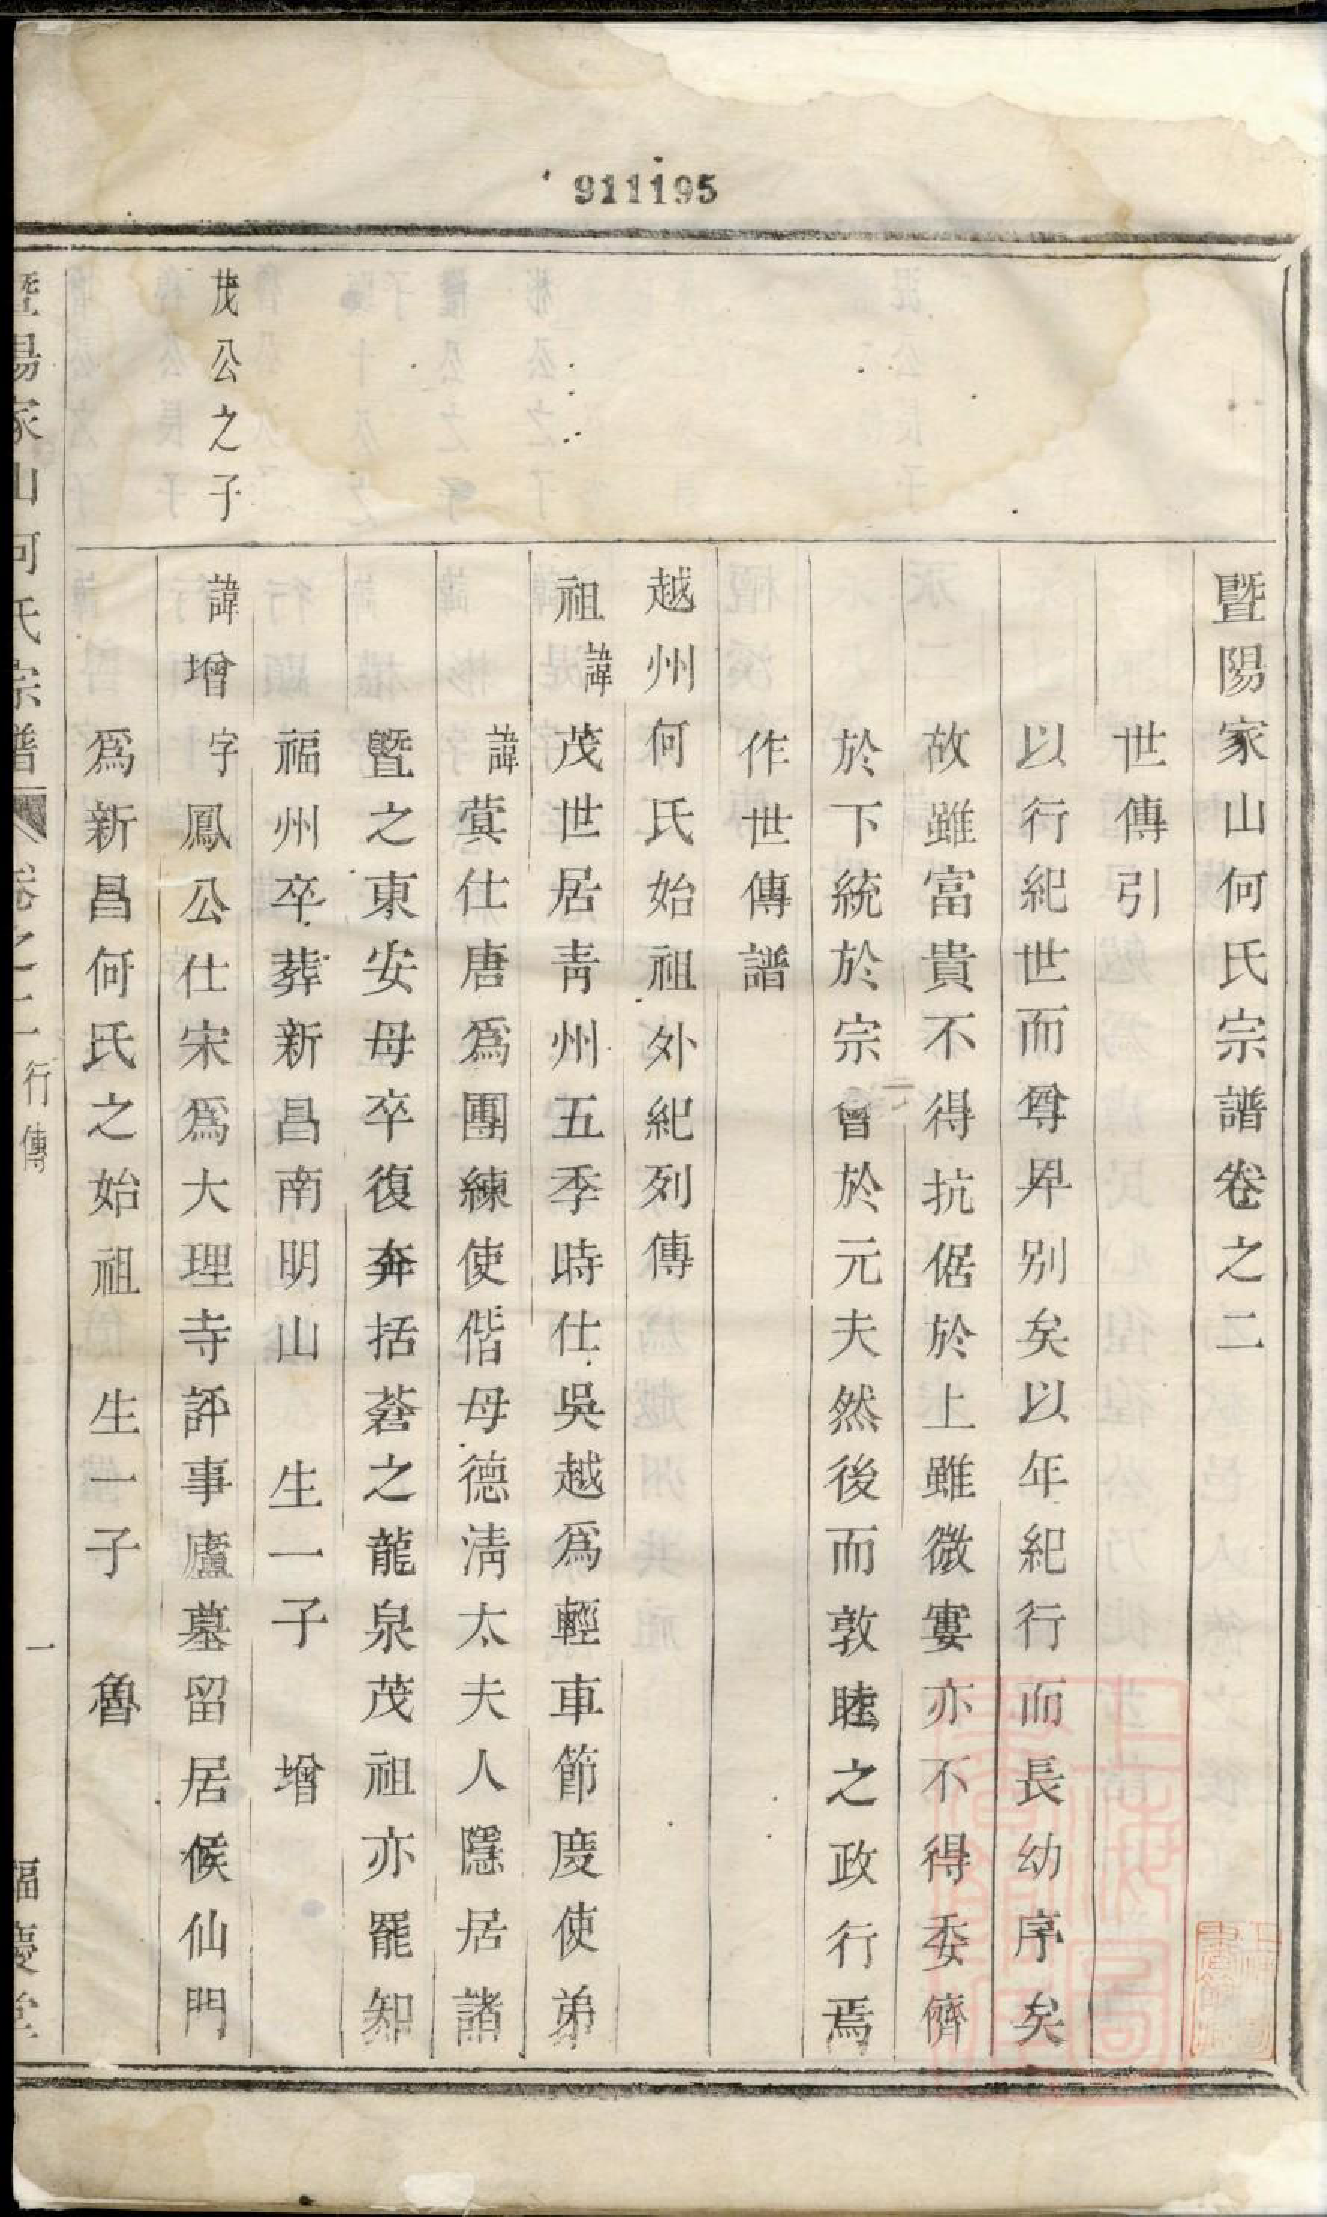 911195
暨陽家山何氏宗譜卷之二
世傳引
以行紀世而尊卑別矣以年紀行而長幼序矣
故雖富貴不得抗倨於上雖微寠亦不得委儕
於下統於宗會於元夫然後而敦睦之政行焉
作世傳譜
越州何氏始祖外紀列傳
祖諱茂世居靑州五季時仕吳越爲輕車節度使弟
諱蓂仕唐爲團練使偕母德淸太夫人隱居諸
暨之東安母卒復奔括蒼之龍泉茂祖亦罷知
福州卒葬新昌南明山 生一子 增
茂公之子
諱增字鳳公仕宋爲大理寺評事廬墓留居候仙門
爲新昌何氏之始祖 生一子 魯
暨陽家山何氏宗譜 卷之二 行傳 一 福慶堂